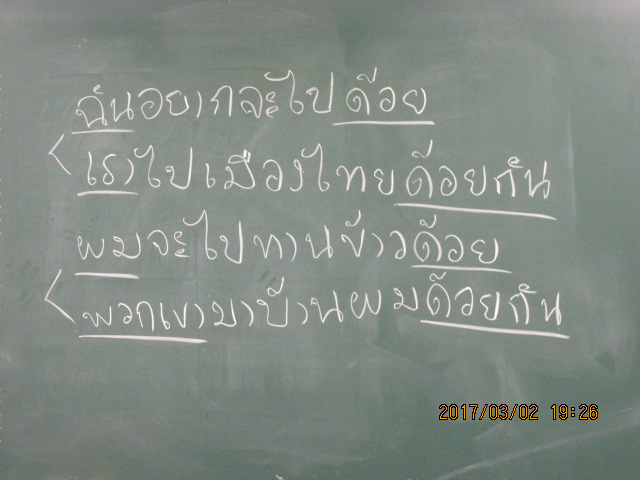 ฉันอยากจะไปด้วย
เราไปเมืองไทยด้วยกัน
ผมจะไปทานข้าวด้วย
พวกเขามาบ้านผมด้วยกัน
2017/03/02 19:26